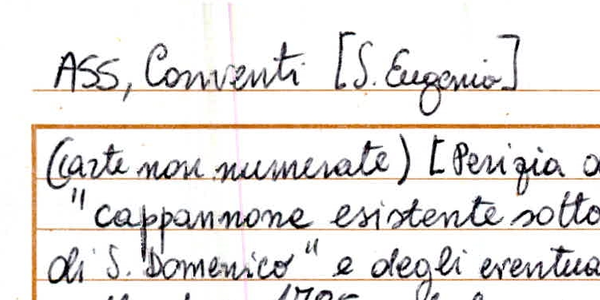 ASS, Conventi [S. Eugenio]
(carte non numerate) [Perizia
"cappannone esistente sotto
di S. Domenico" e degli
1795